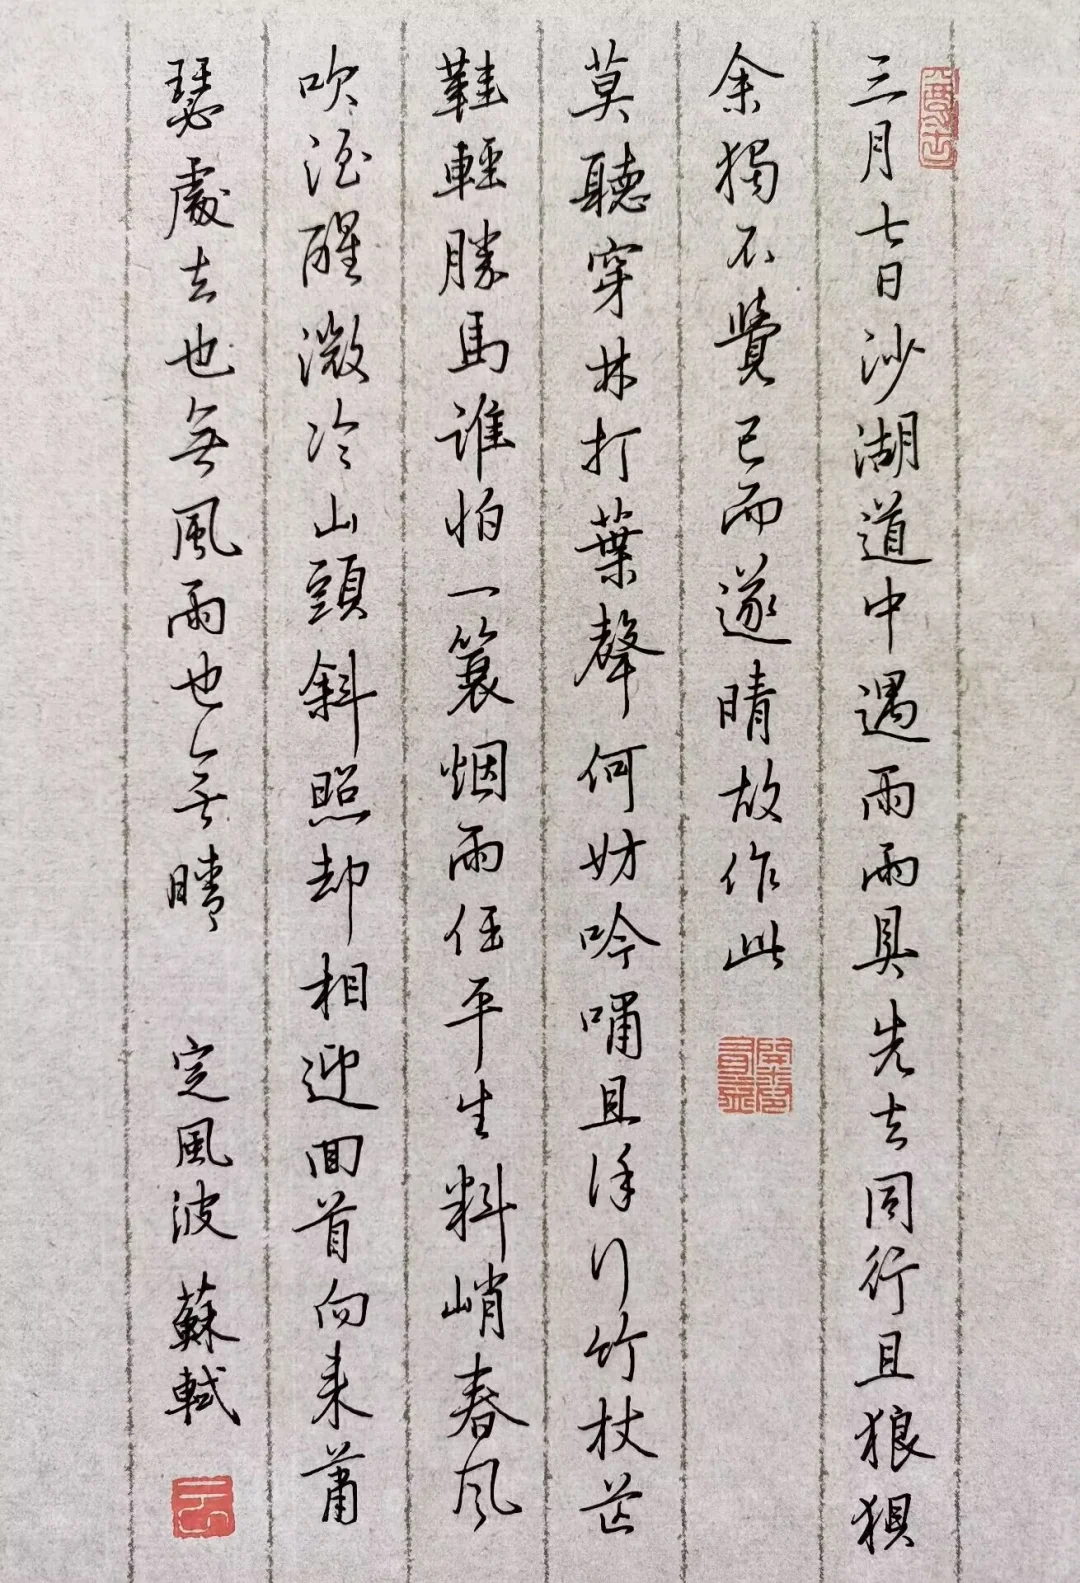 三月七日沙湖道中遇雨雨具先去同行且狼狽
余獨不覺已而遂晴故作此
莫聽穿林打葉聲何妨吟嘯且徐行竹杖芒
鞋輕勝馬誰怕一蓑烟雨任平生料峭春風
吹酒醒微冷山頭斜照却相迎回首向来蕭
瑟處去也無風雨也無晴 定風波 蘇軾
開卷有益